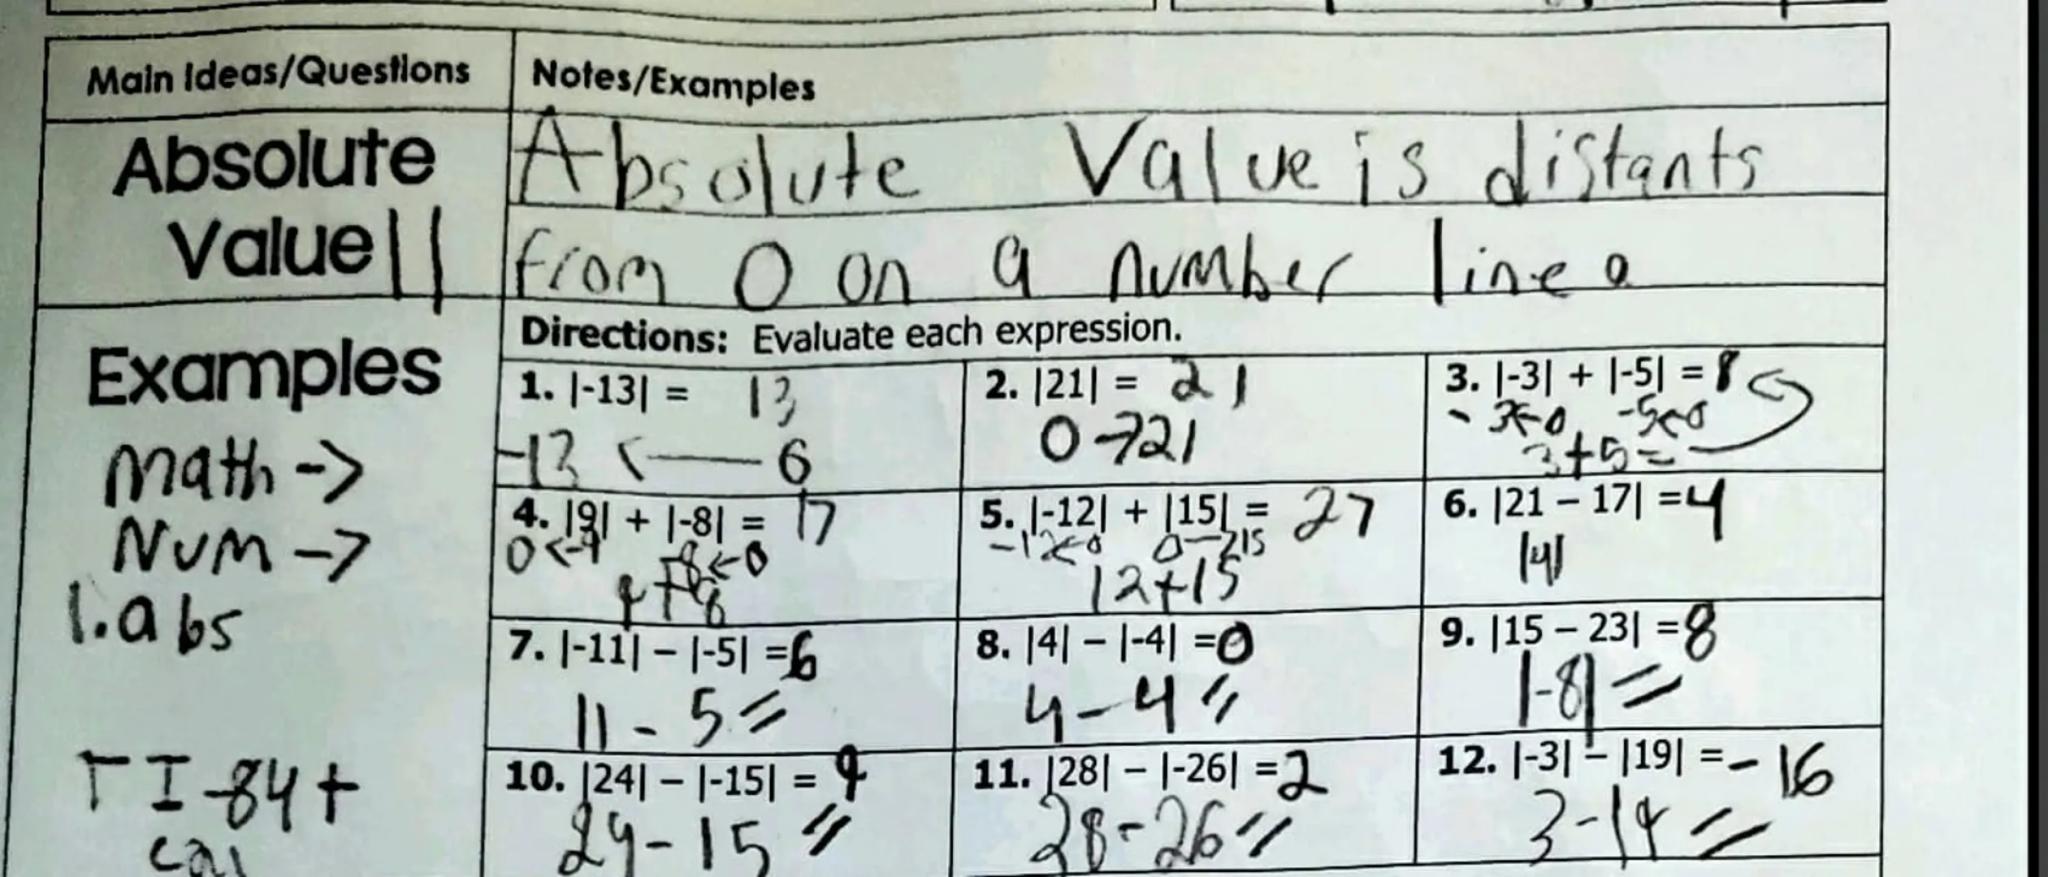 Main Ideas/Questions
Notes/Examples
Absolute
Value ||
Absolute Value is distants
from 0 on a number line
Directions: Evaluate each expression.
Examples
Math ->
Num ->
1. abs
TI-84+
cal
1. |-13| = 13
-13 <— 0
2. |21| = 21
0 -> 21
3. |-3| + |-5| = 8
-3<-0 -5<-0
3+5=
4. |9| + |-8| = 17
0<-9 -8<-0
9+8
5. |-12| + |15| = 27
-12<-0 0->15
12+15
6. |21 – 17| = 4
|4|
7. |-11| – |-5| = 6
11 - 5 =
8. |4| – |-4| = 0
4 - 4 =
9. |15 – 23| = 8
|-8| =
10. |24| – |-15| = 9
24 - 15 =
11. |28| – |-26| = 2
28 - 26 =
12. |-3| – |19| = -16
3 - 19 =